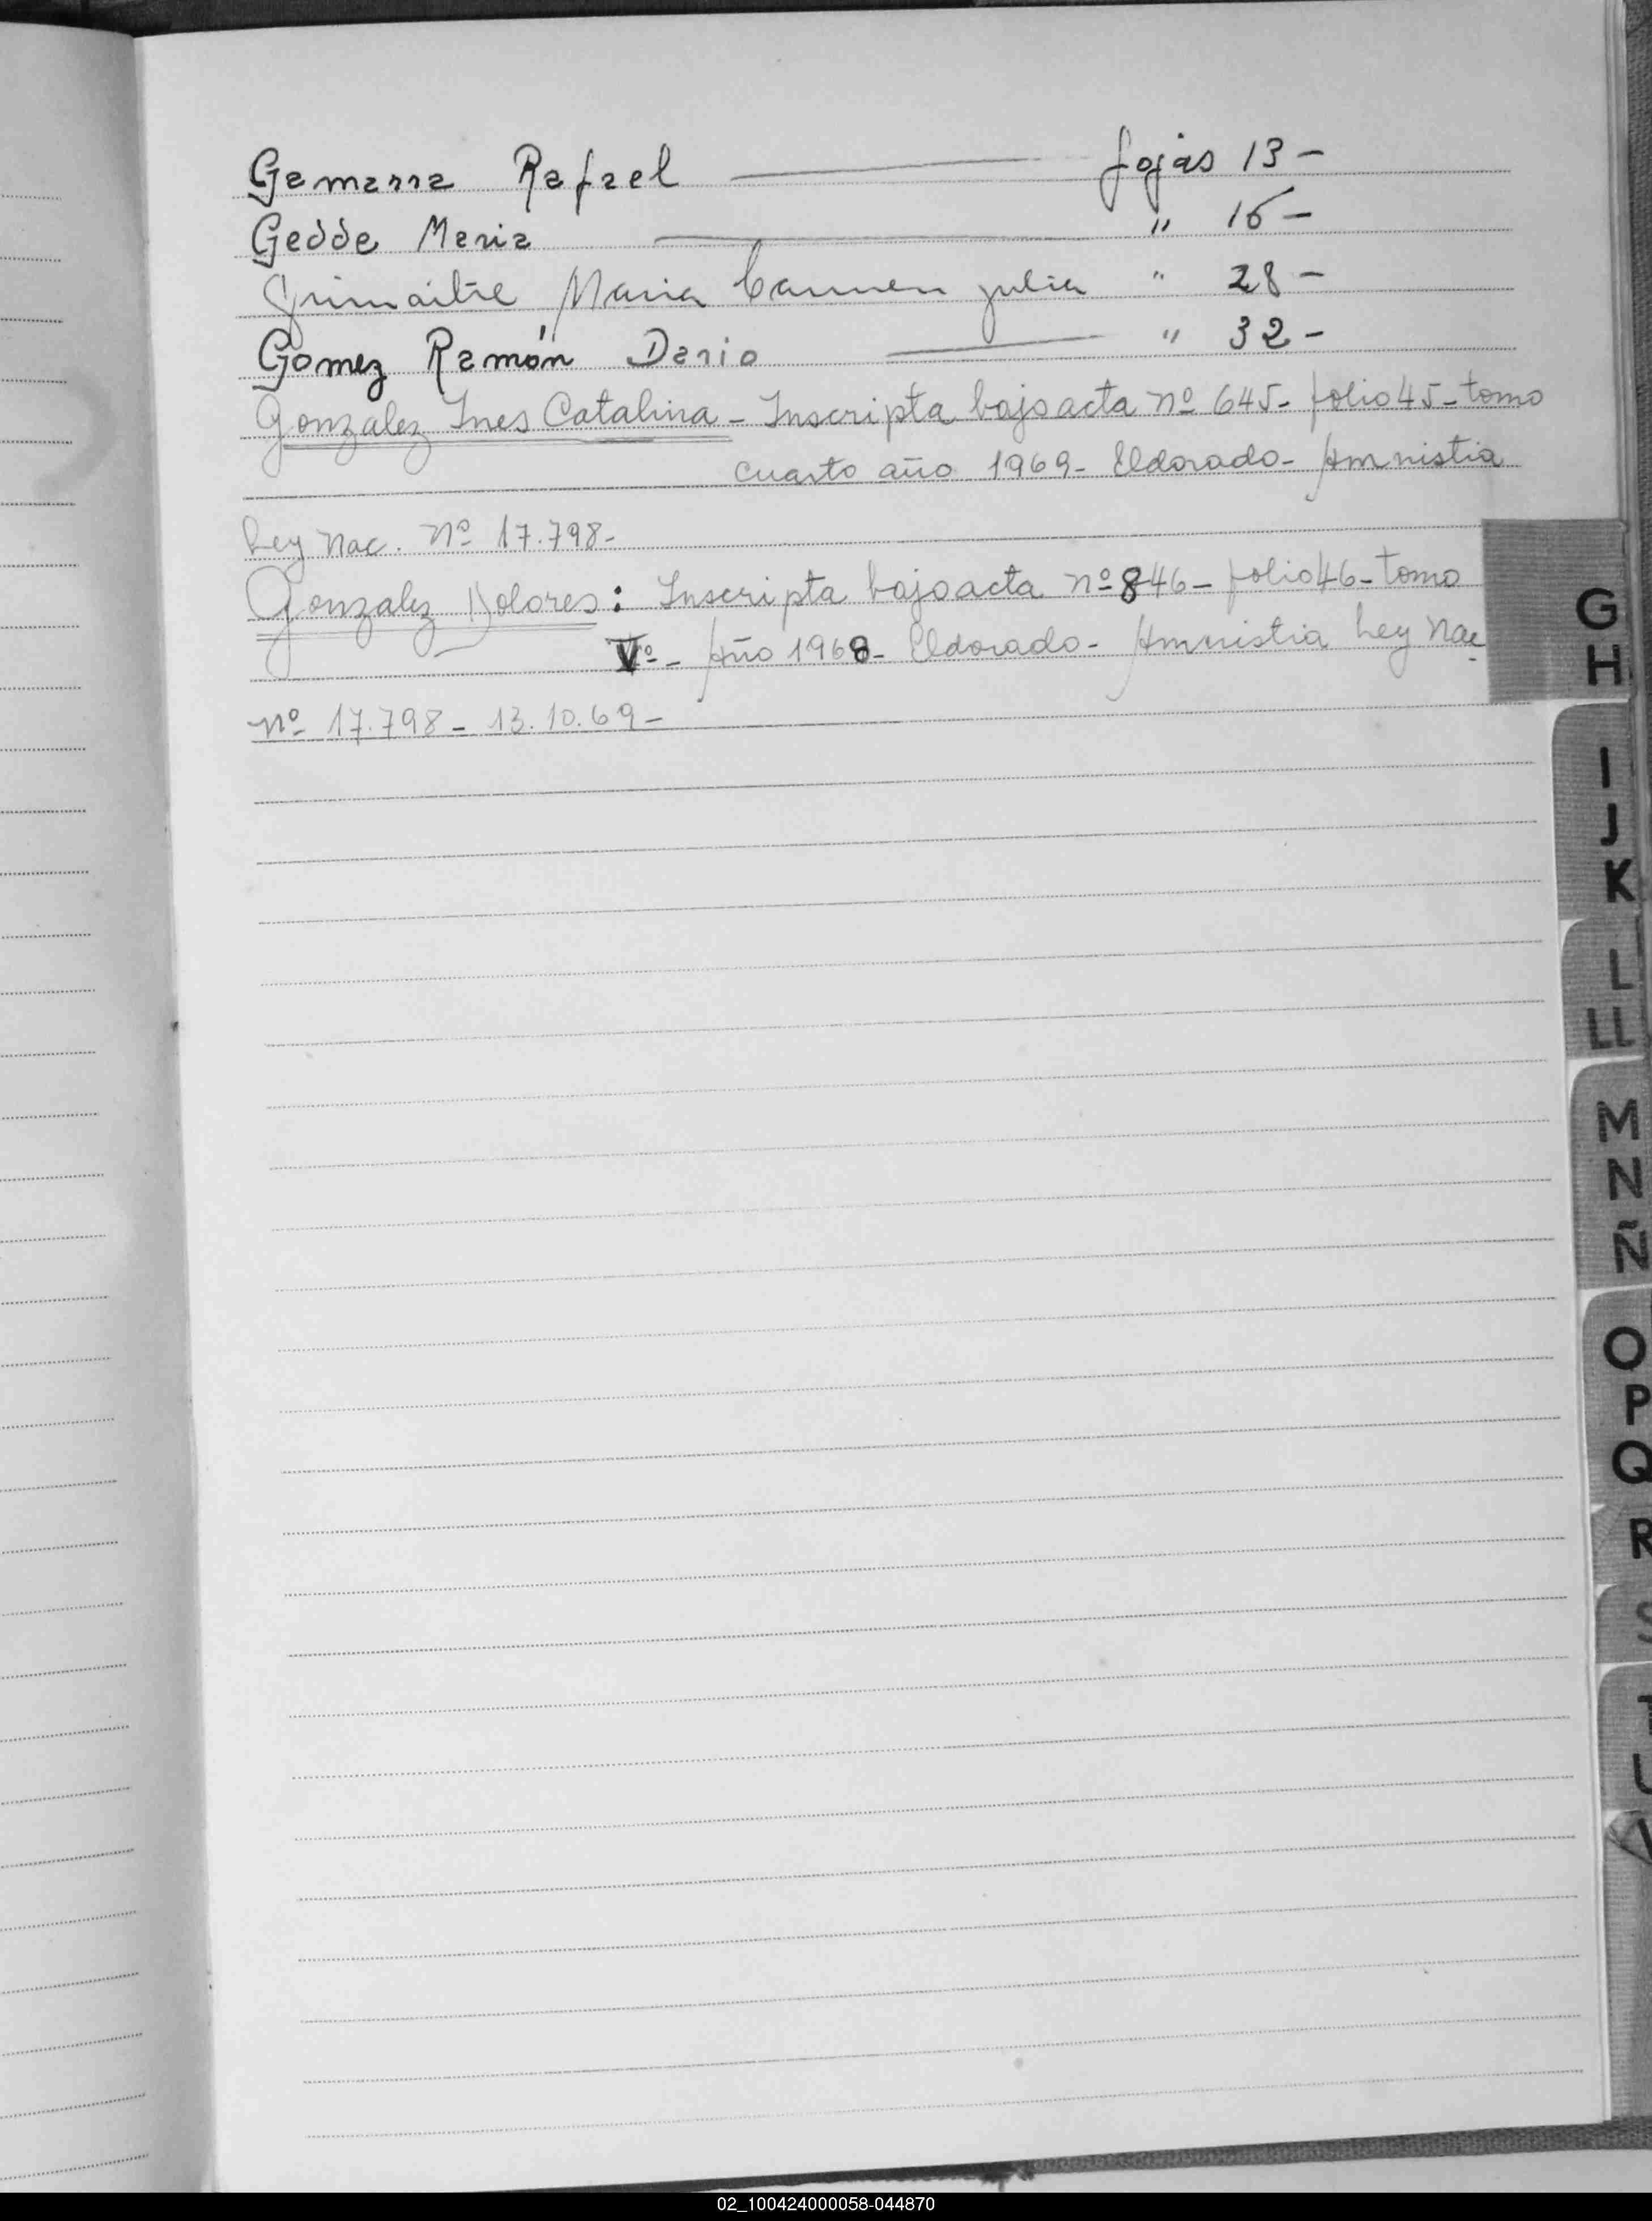 Gamarra Rafael fojas 13 -
Gedde Maria " 15 -
Grimaitre Maria Carmen Julia " 28 -
Gomez Ramón Dario " 32 -
Gonzalez Ines Catalina - Inscripta bajo acta nº 645 - folio 45 - tomo
cuarto año 1969 - Eldorado - Amnistia
Ley Nac. Nº 17.798 -
Gonzalez Dolores : Inscripta bajo acta nº 846 - folio 46 - tomo
Vº - Año 1968 - Eldorado - Amnistia Ley Nac
nº 17.798 - 13.10.69 -
G
H
I
J
K
L
LL
M
N
Ñ
O
P
Q
R
S
T
U
V
02_100424000058-044870